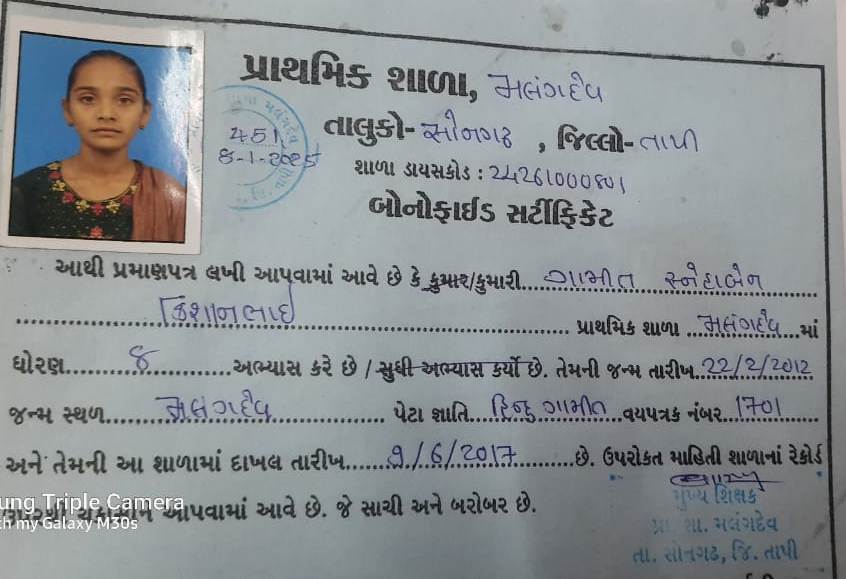 પ્રાથમિક શાળા, મલંગદેવ
તાલુકો- સોનગઢ , જિલ્લો- તાપી
451
8-1-2025
શાળા ડાયસકોડ : 24261000801
બોનોફાઈડ સર્ટીફિકેટ
આથી પ્રમાણપત્ર લખી આપવામાં આવે છે કે કુમાર/કુમારી....ગામીત સ્નેહાબેન
કિશાનભાઇ .................. પ્રાથમિક શાળા ...મલંગદેવ...માં
ધોરણ........8............અભ્યાસ કરે છે / સુધી અભ્યાસ કર્યો છે. તેમની જન્મ તારીખ..22/2/2012
જન્મ સ્થળ........મલંગદેવ............ પેટા જાતિ...હિન્દુ ગામીત..વયપત્રક નંબર..1701
અને તેમની આ શાળામાં દાખલ તારીખ......9/6/2017........છે. ઉપરોકત માહિતી શાળાનાં રેકોર્ડ
આપવામાં આવે છે. જે સાચી અને બરોબર છે.
મુખ્ય શિક્ષક
પ્રા. શા. મલંગદેવ
તા. સોનગઢ, જિ. તાપી
ung Triple Camera
th my Galaxy M30s